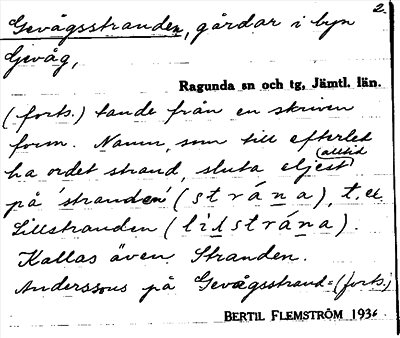 2.
Gevågsstranden, gårdar i byn
Gevåg,
Ragunda sn och tg, Jämtl. län.
(forts.) tande från en skriven
form. Namn, som till efterled
(alltid)
ha ordet strand, sluta eljest
på 'stranden' (strána), t. ex.
Lillstranden (lilstrána).
Kallas även Stranden.
Anderssons på Gevågsstrand = (forts.)
BERTIL FLEMSTRÖM 1936